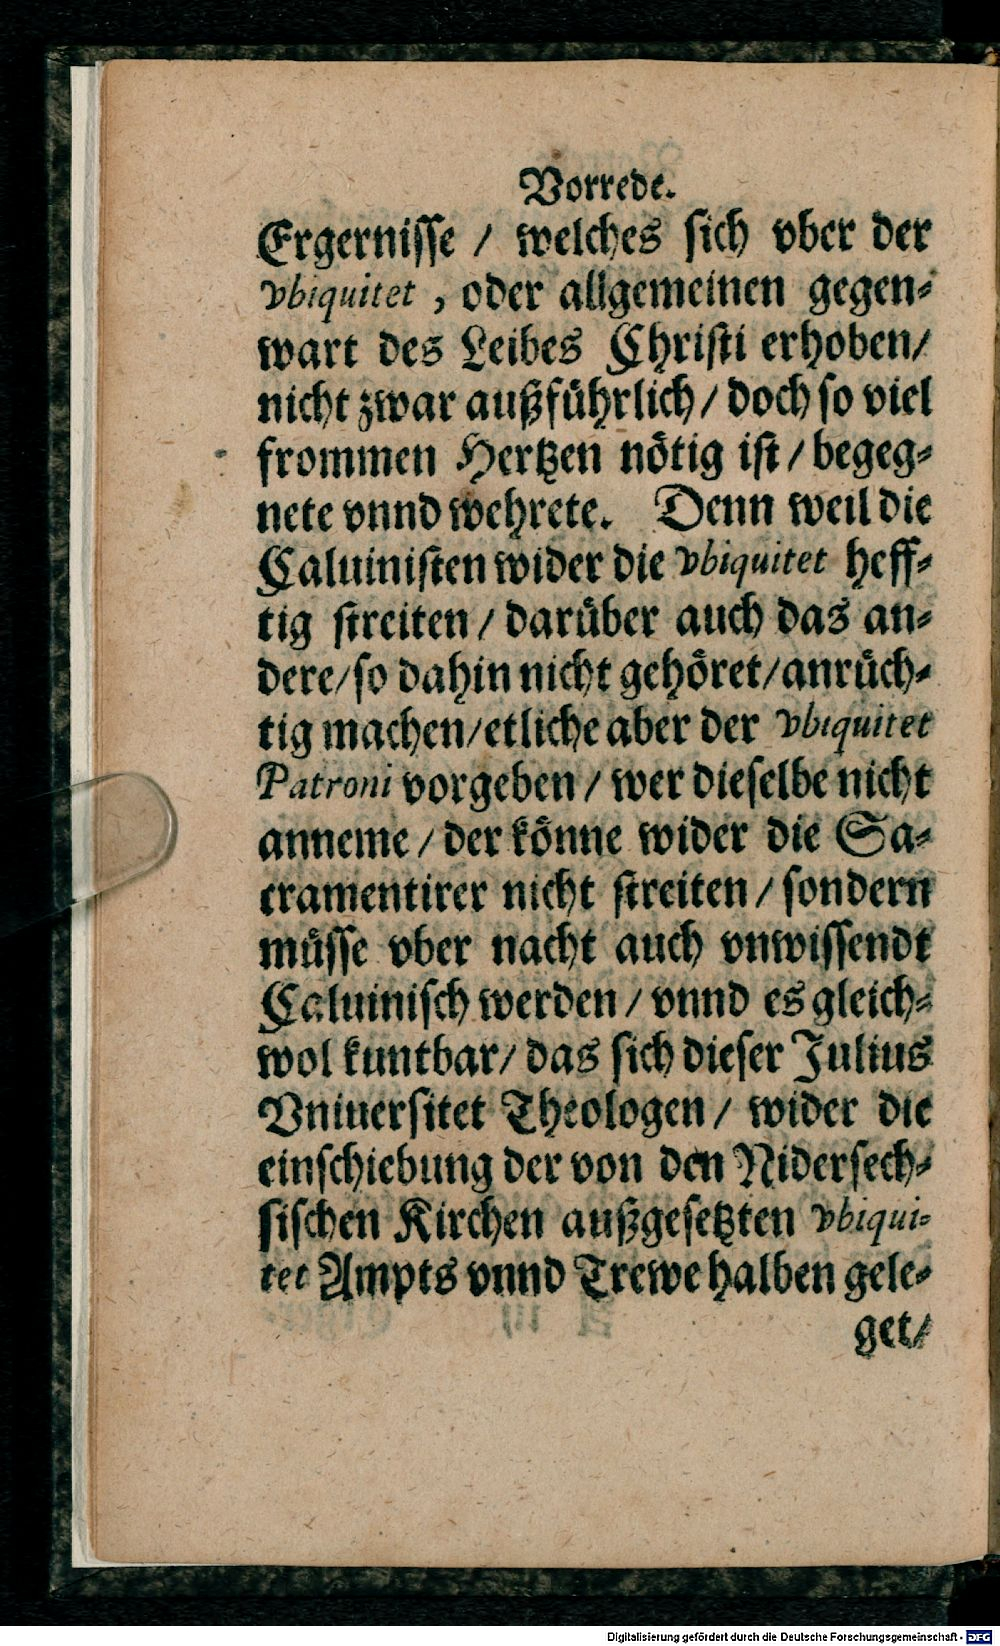 Vorrede.
Ergernisse / welches sich vber der
vbiquitet, oder allgemeinen gegen⸗
wart des Leibes Christi erhoben/
nicht zwar außführlich / doch so viel
frommen Hertzen nötig ist / begeg⸗
nete vnnd wehrete. Denn weil die
Caluinisten wider die vbiquitet heff⸗
tig streiten / darüber auch das an⸗
dere/so dahin nicht gehöret/anrüch⸗
tig machen/etliche aber der vbiquitet
Patroni vorgeben / wer dieselbe nicht
anneme / der könne wider die Sa⸗
cramentirer nicht streiten / sondern
müsse vber nacht auch vnwissendt
Caluinisch werden / vnnd es gleich⸗
wol kuntbar/ das sich dieser Julius
Vniuersitet Theologen / wider die
einschiebung der von den Nidersech⸗
sischen Kirchen außgesetzten vbiqui⸗
tet Ampts vnnd Trewe halben gele⸗
get/
Digitalisierung gefördert durch die Deutsche Forschungsgemeinschaft - DFG